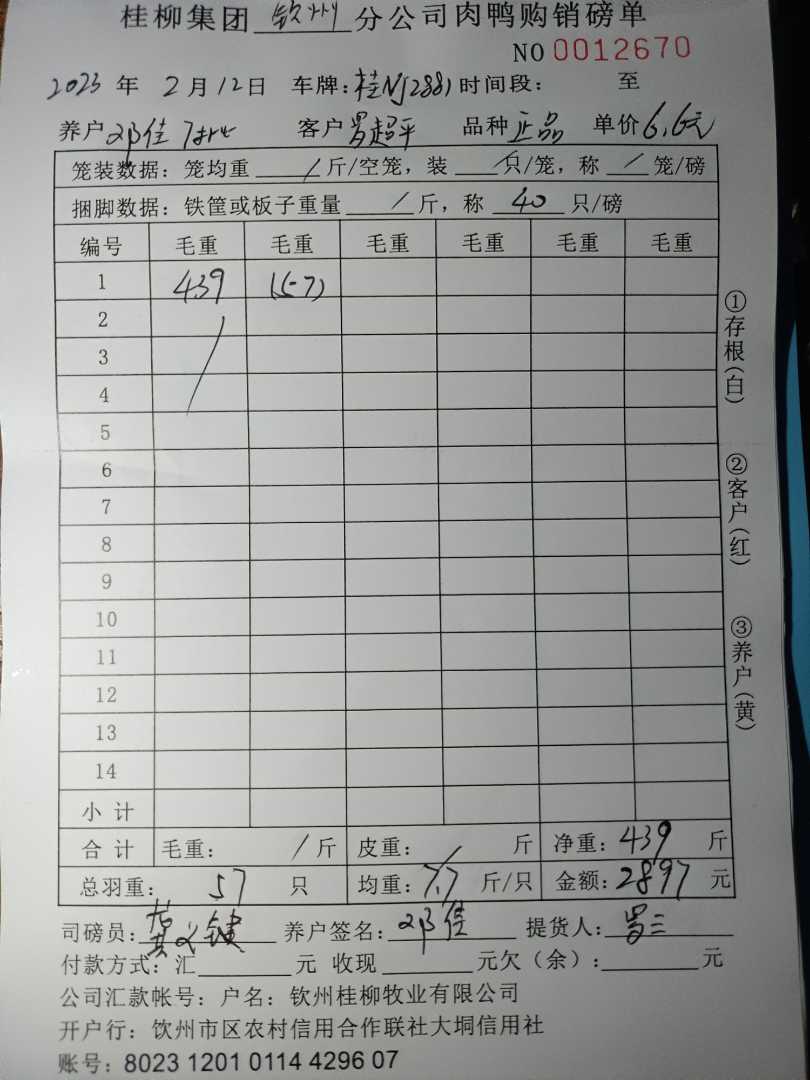 桂柳集团 钦州 分公司肉鸭购销磅单
NO 0012670
2023 年 2 月 12 日 车牌: 桂NJ2881 时间段: 至
养户 邓佳 客户 罗超平 品种 正品 单价 6.6元
笼装数据: 笼均重 / 斤/空笼, 装 / 只/笼, 称 / 笼/磅
捆脚数据: 铁筐或板子重量 / 斤, 称 40 只/磅
编号 毛重 毛重 毛重 毛重 毛重 毛重
1 439 (57)
2
3
4
5
6
7
8
9
10
11
12
13
14
小计
合计 毛重: / 斤 皮重: / 斤 净重: 439 斤
总羽重: 57 只 均重: 7.7 斤/只 金额: 2897 元
司磅员: 黄义健 养户签名: 邓佳 提货人: 罗三
付款方式: 汇 元 收现 元欠(余): 元
公司汇款帐号: 户名: 钦州桂柳牧业有限公司
开户行: 钦州市区农村信用合作联社大垌信用社
账号: 8023 1201 0114 4296 07
①存根(白)
②客户(红)
③养户(黄)